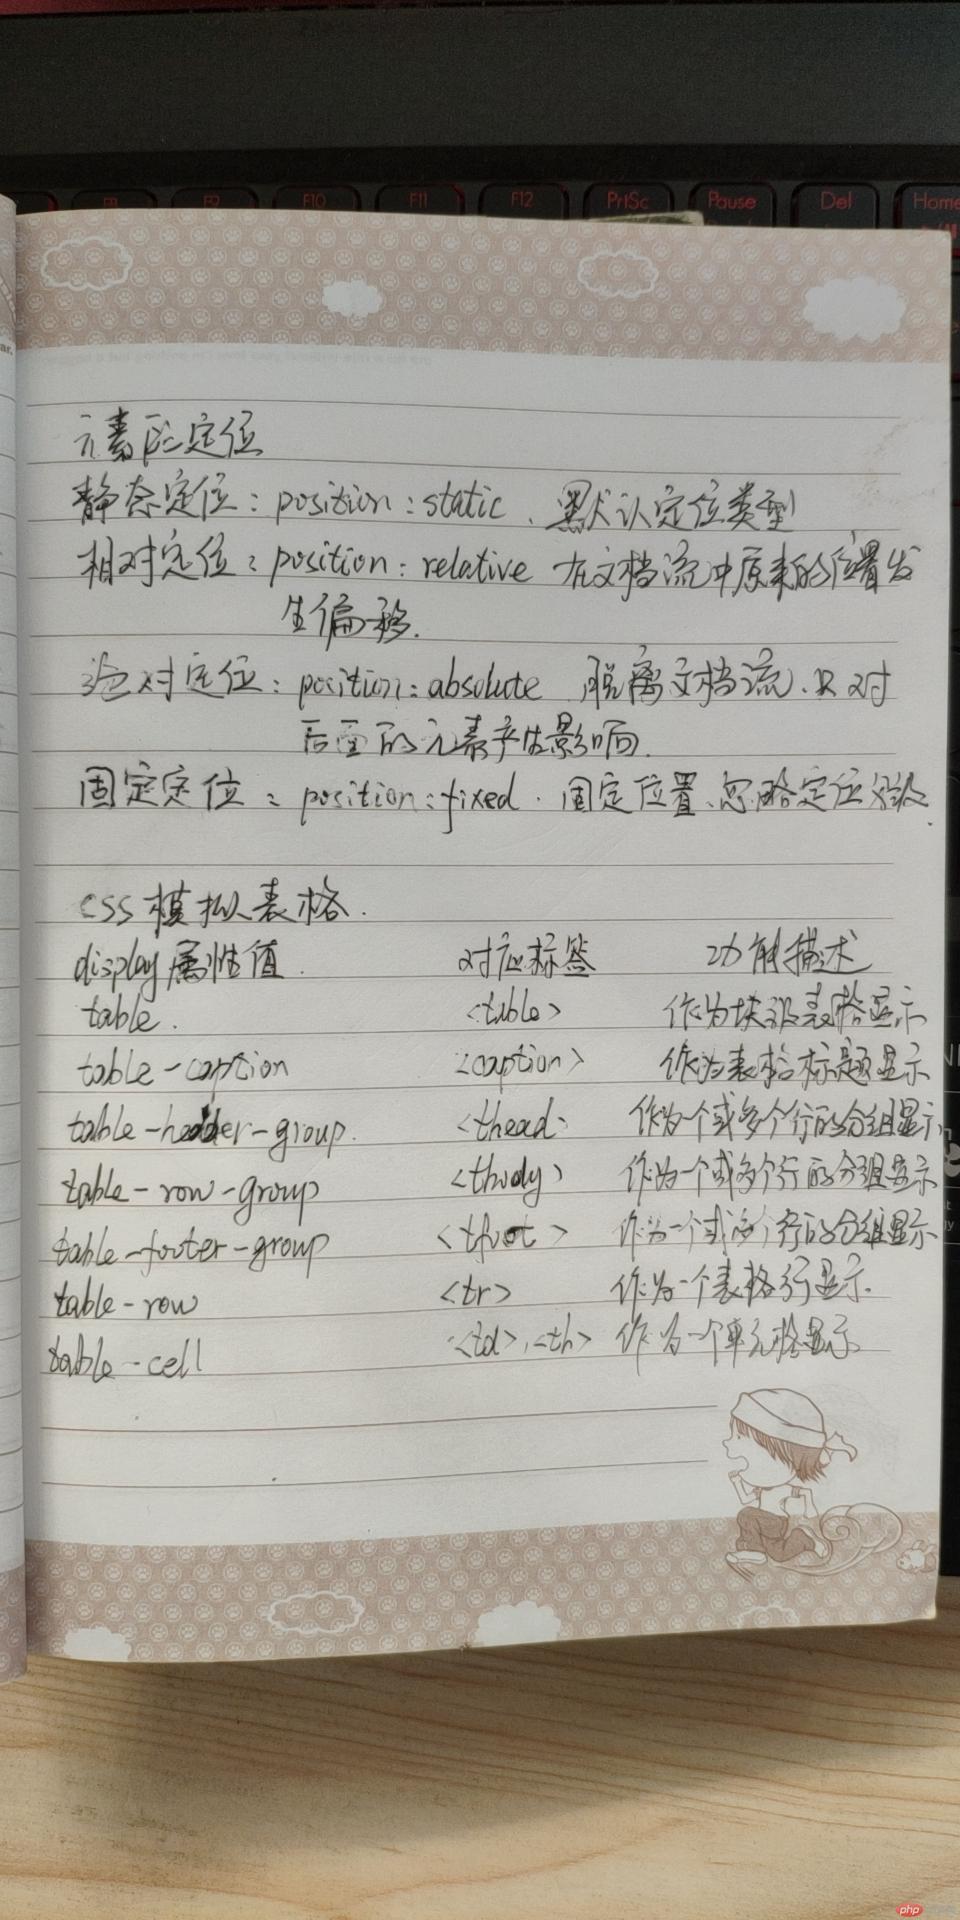 F9 F10 F11 F12 PrtSc Pause Del Home
ar.
元素的定位
静态定位：position：static．默认定位类型
相对定位：position：relative 在文档流中原来的位置发
生偏移．
绝对定位：position：absolute 脱离文档流．只对
后面的元素产生影响．
固定定位：position：fixed．固定位置、忽略定位父级．
css模拟表格．
display属性值． 对应标签 功能描述
table． <table> 作为块级表格显示
table-caption <caption> 作为表格标题显示
table-header-group． <thead> 作为一个或多个行的分组显示
table-row-group <tbody> 作为一个或多个行的分组显示
table-footer-group <tfoot> 作为一个或多个行的分组显示
table-row <tr> 作为一个表格行显示．
table-cell <td>，<th> 作为一个单元格显示
php